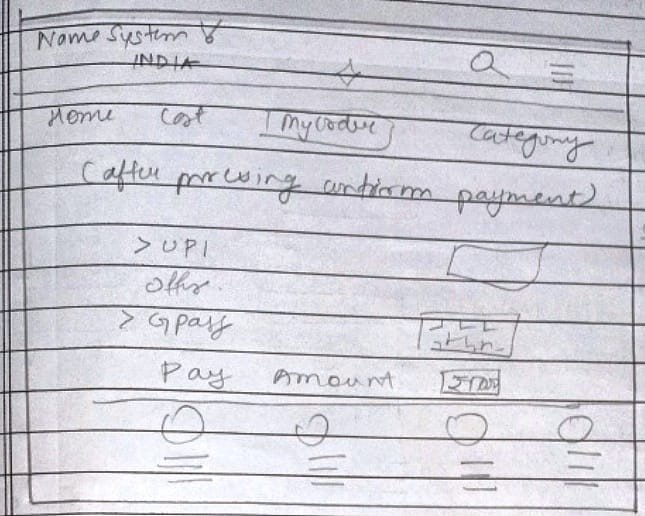 Name System
INDIA
Home Cost My order Category
(after pressing confirm payment)
> UPI
> Gpay
Pay Amount